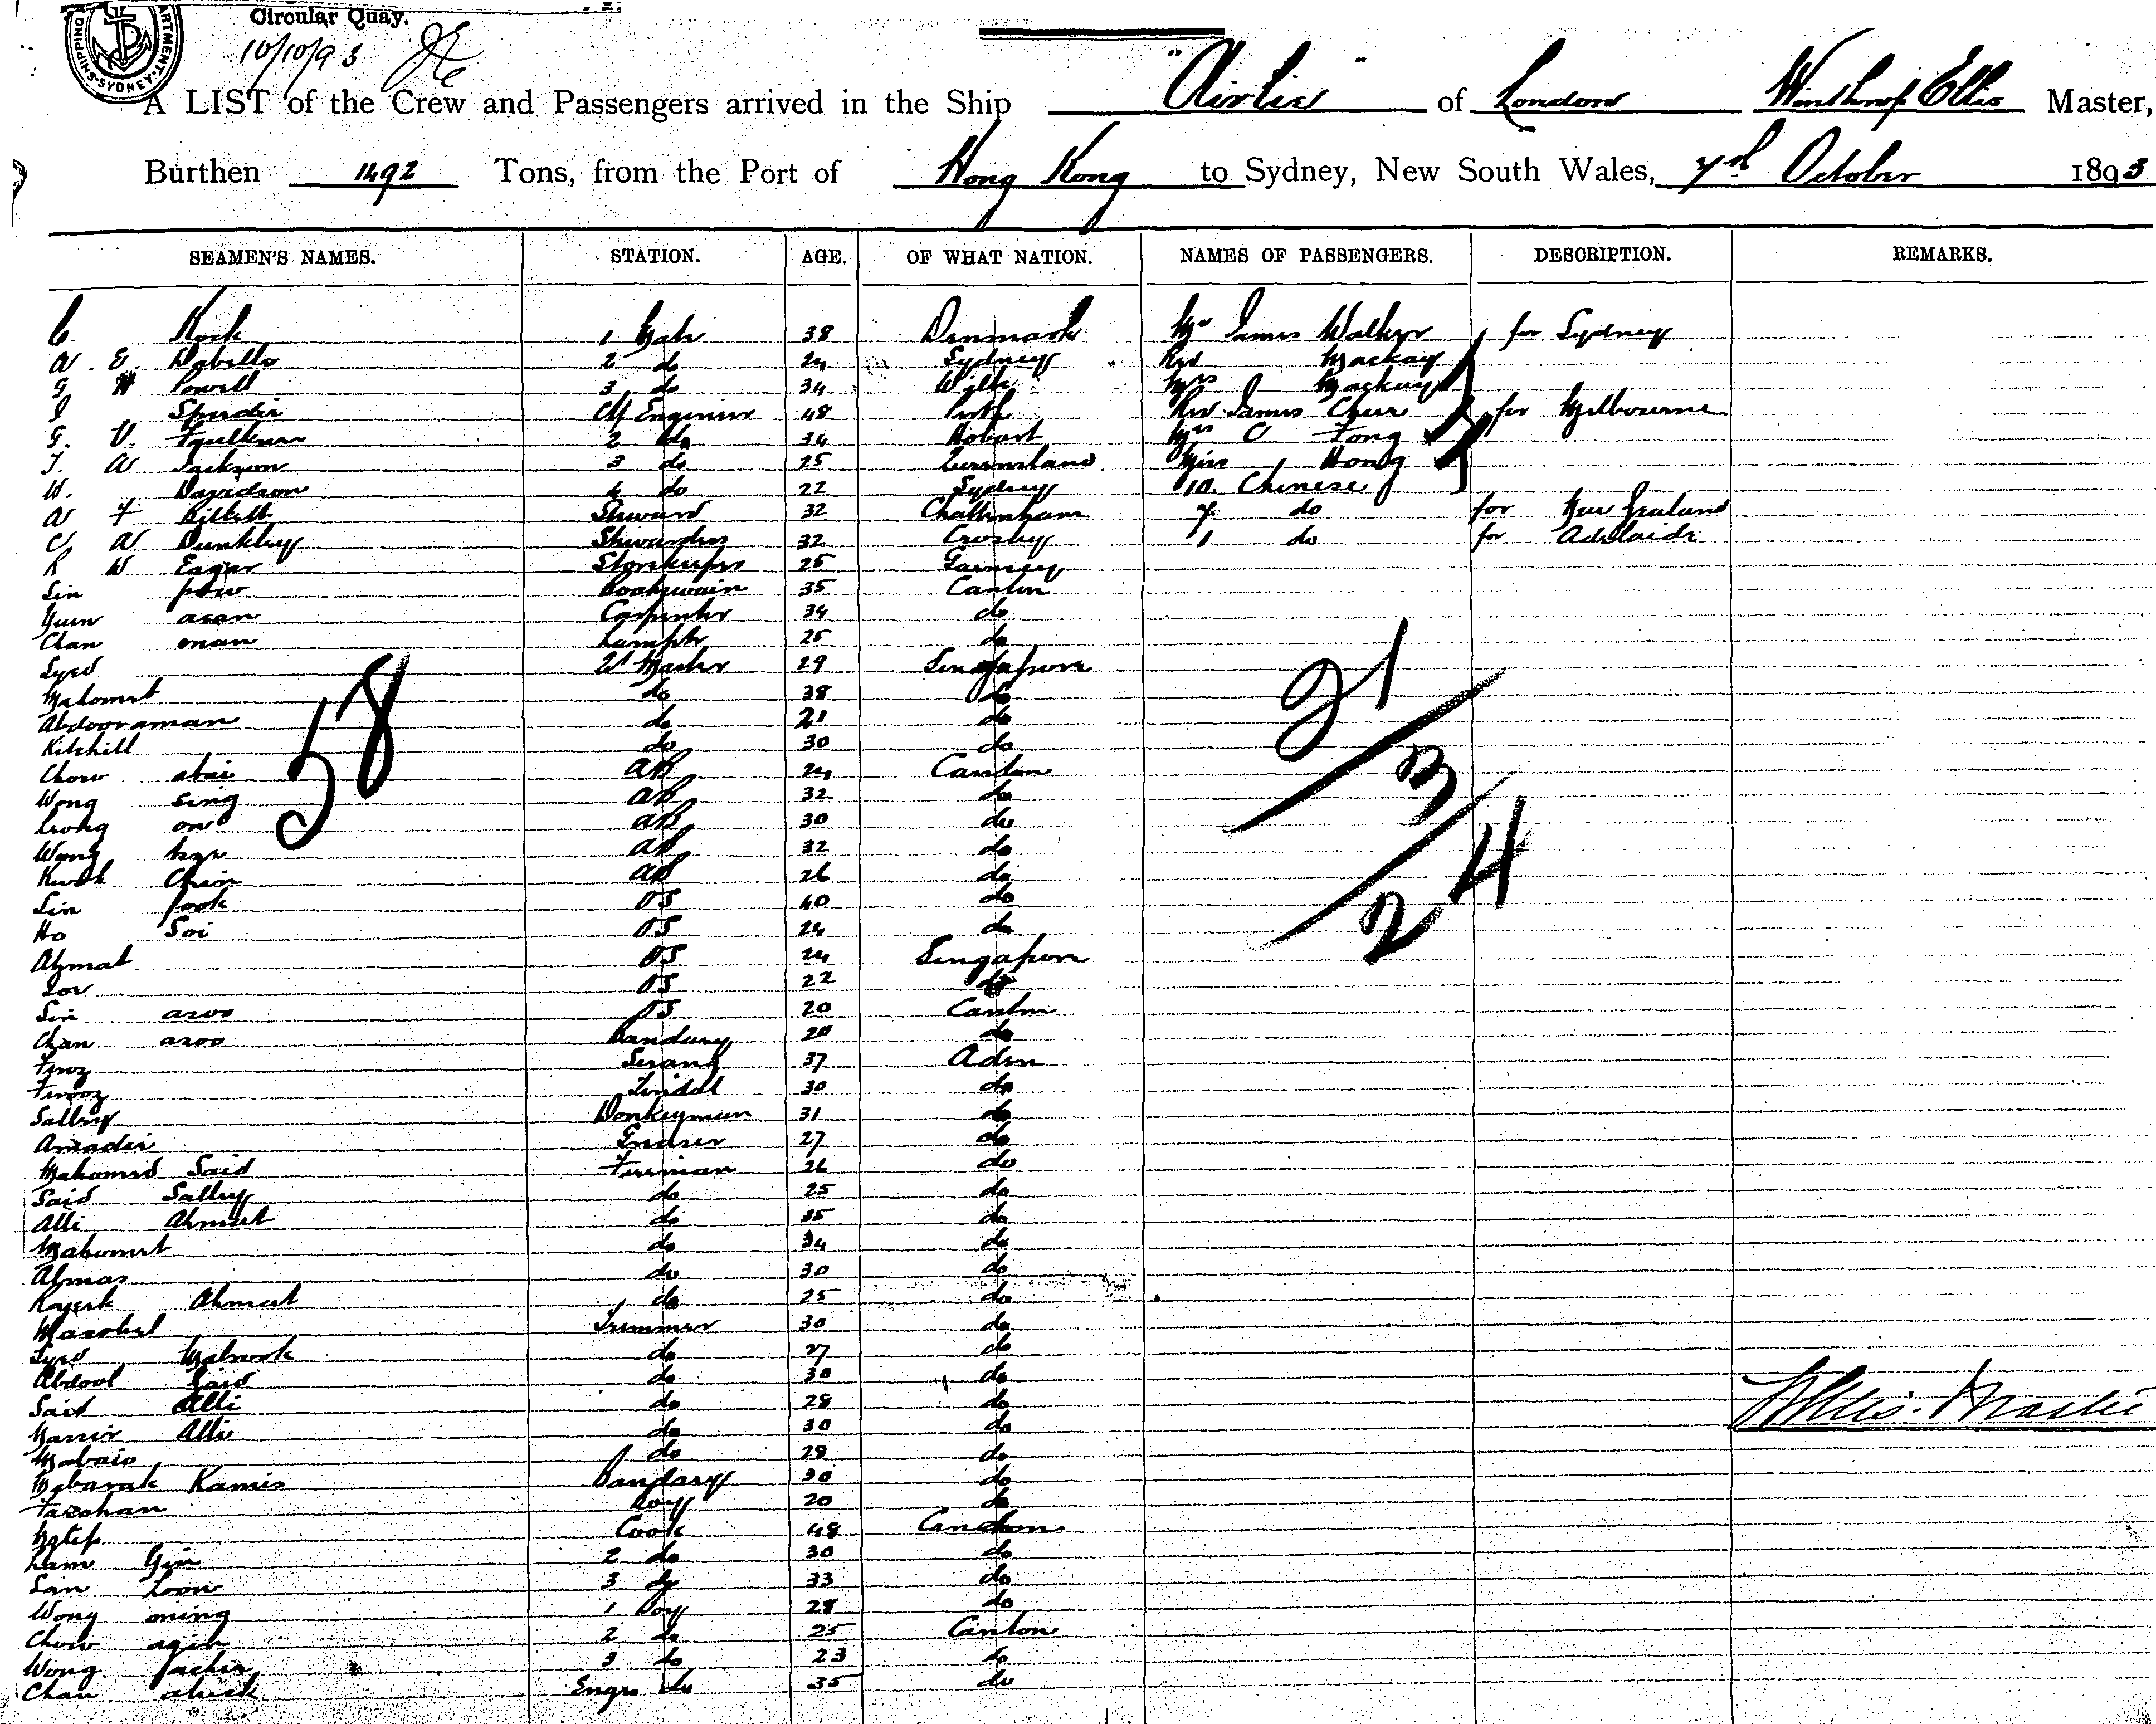 Circular Quay.
10/10/93
SHIPPING DEPARTMENT SYDNEY
A LIST of the Crew and Passengers arrived in the Ship "Airlie" of London Winthrop Ellis Master,
Burthen 1492 Tons, from the Port of Hong Kong to Sydney, New South Wales, 7th October 1893
SEAMEN'S NAMES. STATION. AGE. OF WHAT NATION. NAMES OF PASSENGERS. DESCRIPTION. REMARKS.
C. Kock 1 Mate 38 Denmark Mr James Walker for Sydney
A. E. 2 do 24 Sydney Rev Mackay
G H Powell 3 do 34 Mrs Mackay
Ch Engineer 48 Perth Rev James Chue for Melbourne
G. V. Faulkner 2 do 34 Hobart Mrs Fong
J. A Jackson 3 do 25 Queensland Miss Hong
W. Davidson 4 do 22 Sydney 10. Chinese
A F Steward 32 Cheltenham 7 do for New Zealand
C A Dunkley Stewardess 32 Crosby 1 do for Adelaide
R W Eagar Storekeeper 25 Garnsey
Lin Boatswain 35 Canton
asan Carpenter 34 do
Chan onan Lamptr 25 do
Syed Qr Master 29 Singapore
Mahomet do 38 do
Abdooraman do 21 do
Kitchill do 30 do
58
21
3
24
Chow akai AB 24 Canton
Wong sing AB 32 do
on AB 30 do
Wong AB 32 do
Kwok Chin AB 26 do
Lin fook OS 40 do
Ho Soi OS 24 do
Ahmat OS 24 Singapore
OS 22 do
Lin asoo OS 20 Canton
Chan asoo Bandary 20 do
Feroz Serang 37 Aden
Ferooz Tindal 30 do
Salley Donkeyman 31 do
Amadee Greaser 27 do
Mahomed Said Fireman 26 do
Said Salley do 25 do
Alli Ahmat do 35 do
Mahomet do 34 do
Almas do 30 do
Ahmat do 25 do
Trimmer 30 do
Syed Mabrook do 27 do
Abdool Said do 30 do
Said Alli do 28 do
Alli do 30 do
do 28 do
Mabarak Kamis Bandary 30 do
Farahan Boy 20 do
Cook 48 Canton
Lam Yin 2 do 30 do
San Loon 3 do 33 do
Wong ming 1 Boy 28 do
Chow 2 do 25 Canton
Wong 3 do 23 do
Chan Engrs do 35 do
W Ellis. Master